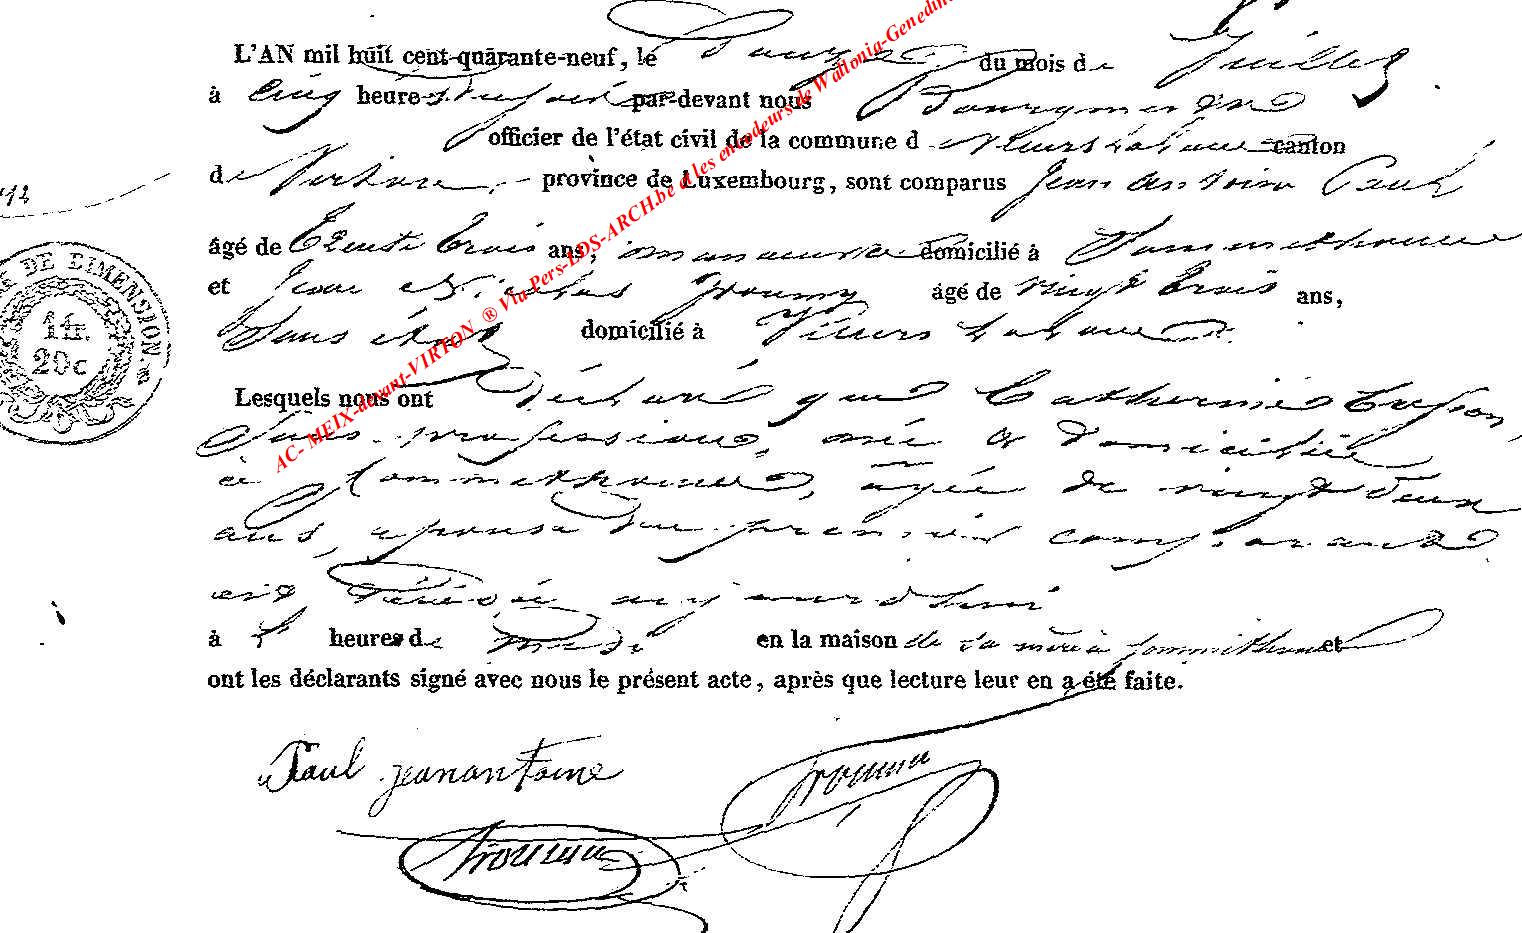 L'AN mil huit cent quarante-neuf, le Douze du mois de Juillet
à Cinq heures du soir par-devant nous Bourgmestre
officier de l'état civil de la commune d Villers la loue canton
de Virton, province de Luxembourg, sont comparus Jean Antoine Paul
âgé de Trente trois ans, manœuvre domicilié à Sommethonne
et Jean Nicolas âgé de vingt trois ans,
Sans état domicilié à Villers la loue
Lesquels nous ont Déclaré que Catherine
Sans profession, née & domiciliée
à Sommethonne, âgée de vingt deux
ans, épouse du premier comparant
est décédée aujourd'hui
à heures de midi en la maison de la mère à Sommethonne et
ont les déclarants signé avec nous le présent acte, après que lecture leur en a été faite.
Paul jean antoine
DE DIMENSION.
1 fr.
20 c
AC- MEIX-devant-VIRTON ® Via Pers-LDS-ARCH.be et les encodeurs de Wallonia-Genedin